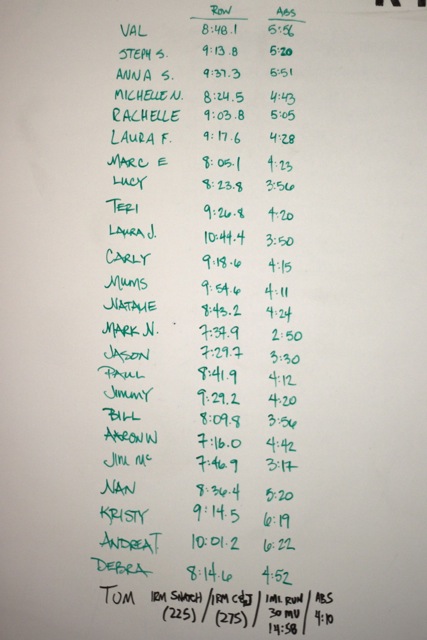 ROW ABS
VAL 8:48.1 5:56
STEPH S. 9:13.8 5:20
ANNA S. 9:37.3 5:51
MICHELLE N. 8:24.5 4:43
RACHELLE 9:03.8 5:05
LAURA F. 9:17.6 4:28
MARC E 8:05.1 4:23
LUCY 8:23.8 3:56
TERI 9:26.8 4:20
LAURA J. 10:44.4 3:50
CARLY 9:18.6 4:15
MUMS 9:54.6 4:11
NATALIE 8:43.2 4:24
MARK N. 7:37.9 2:50
JASON 7:29.7 3:30
PAUL 8:41.9 4:12
JIMMY 9:29.2 4:20
BILL 8:09.8 3:56
AARON W 7:16.0 4:42
JIM Mc 7:46.9 3:17
NAN 8:36.4 5:20
KRISTY 9:14.5 6:19
ANDREA T 10:01.2 6:22
DEBRA 8:14.6 4:52
TOM 1RM SNATCH / 1RM C&J / 1MI RUN / ABS
(225) (275) 30 MU 4:10
14:58